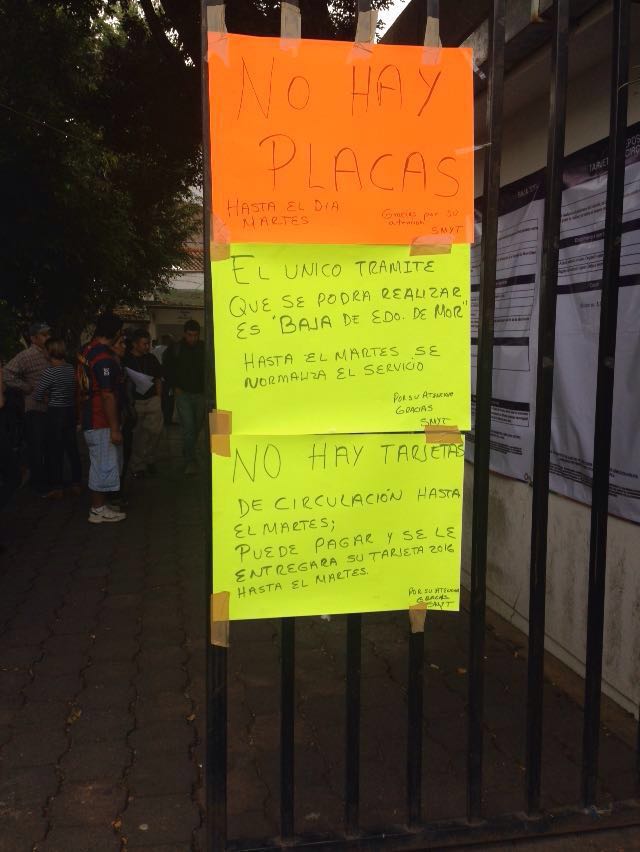 NO HAY
PLACAS
HASTA EL DIA
MARTES
Gracias por su
atención
SMYT
EL UNICO TRAMITE
QUE SE PODRA REALIZAR
ES "BAJA DE EDO. DE MOR"
HASTA EL MARTES SE
NORMALIZA EL SERVICIO
POR SU ATENCION
GRACIAS
SMYT
NO HAY TARJETAS
DE CIRCULACIÓN HASTA
EL MARTES;
PUEDE PAGAR Y SE LE
ENTREGARA SU TARJETA 2016
HASTA EL MARTES.
POR SU ATENCION
GRACIAS
SMYT